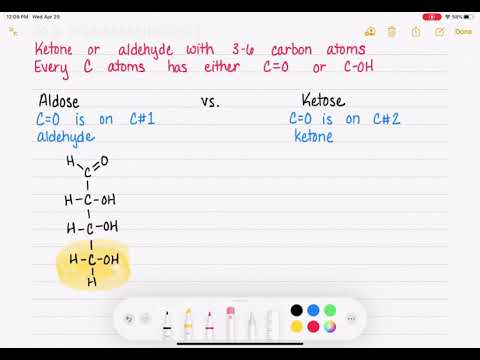 12:08 PM Wed Apr 25
58%
Done
Ketone or aldehyde with 3-6 carbon atoms
Every C atoms has either C=O or C-OH
Aldose vs. Ketose
C=O is on C#1 C=O is on C#2
aldehyde ketone
H O
C
H-C-OH
H-C-OH
H-C-OH
H